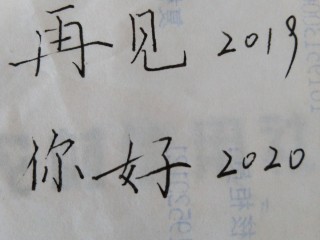 再见 2019
你好 2020